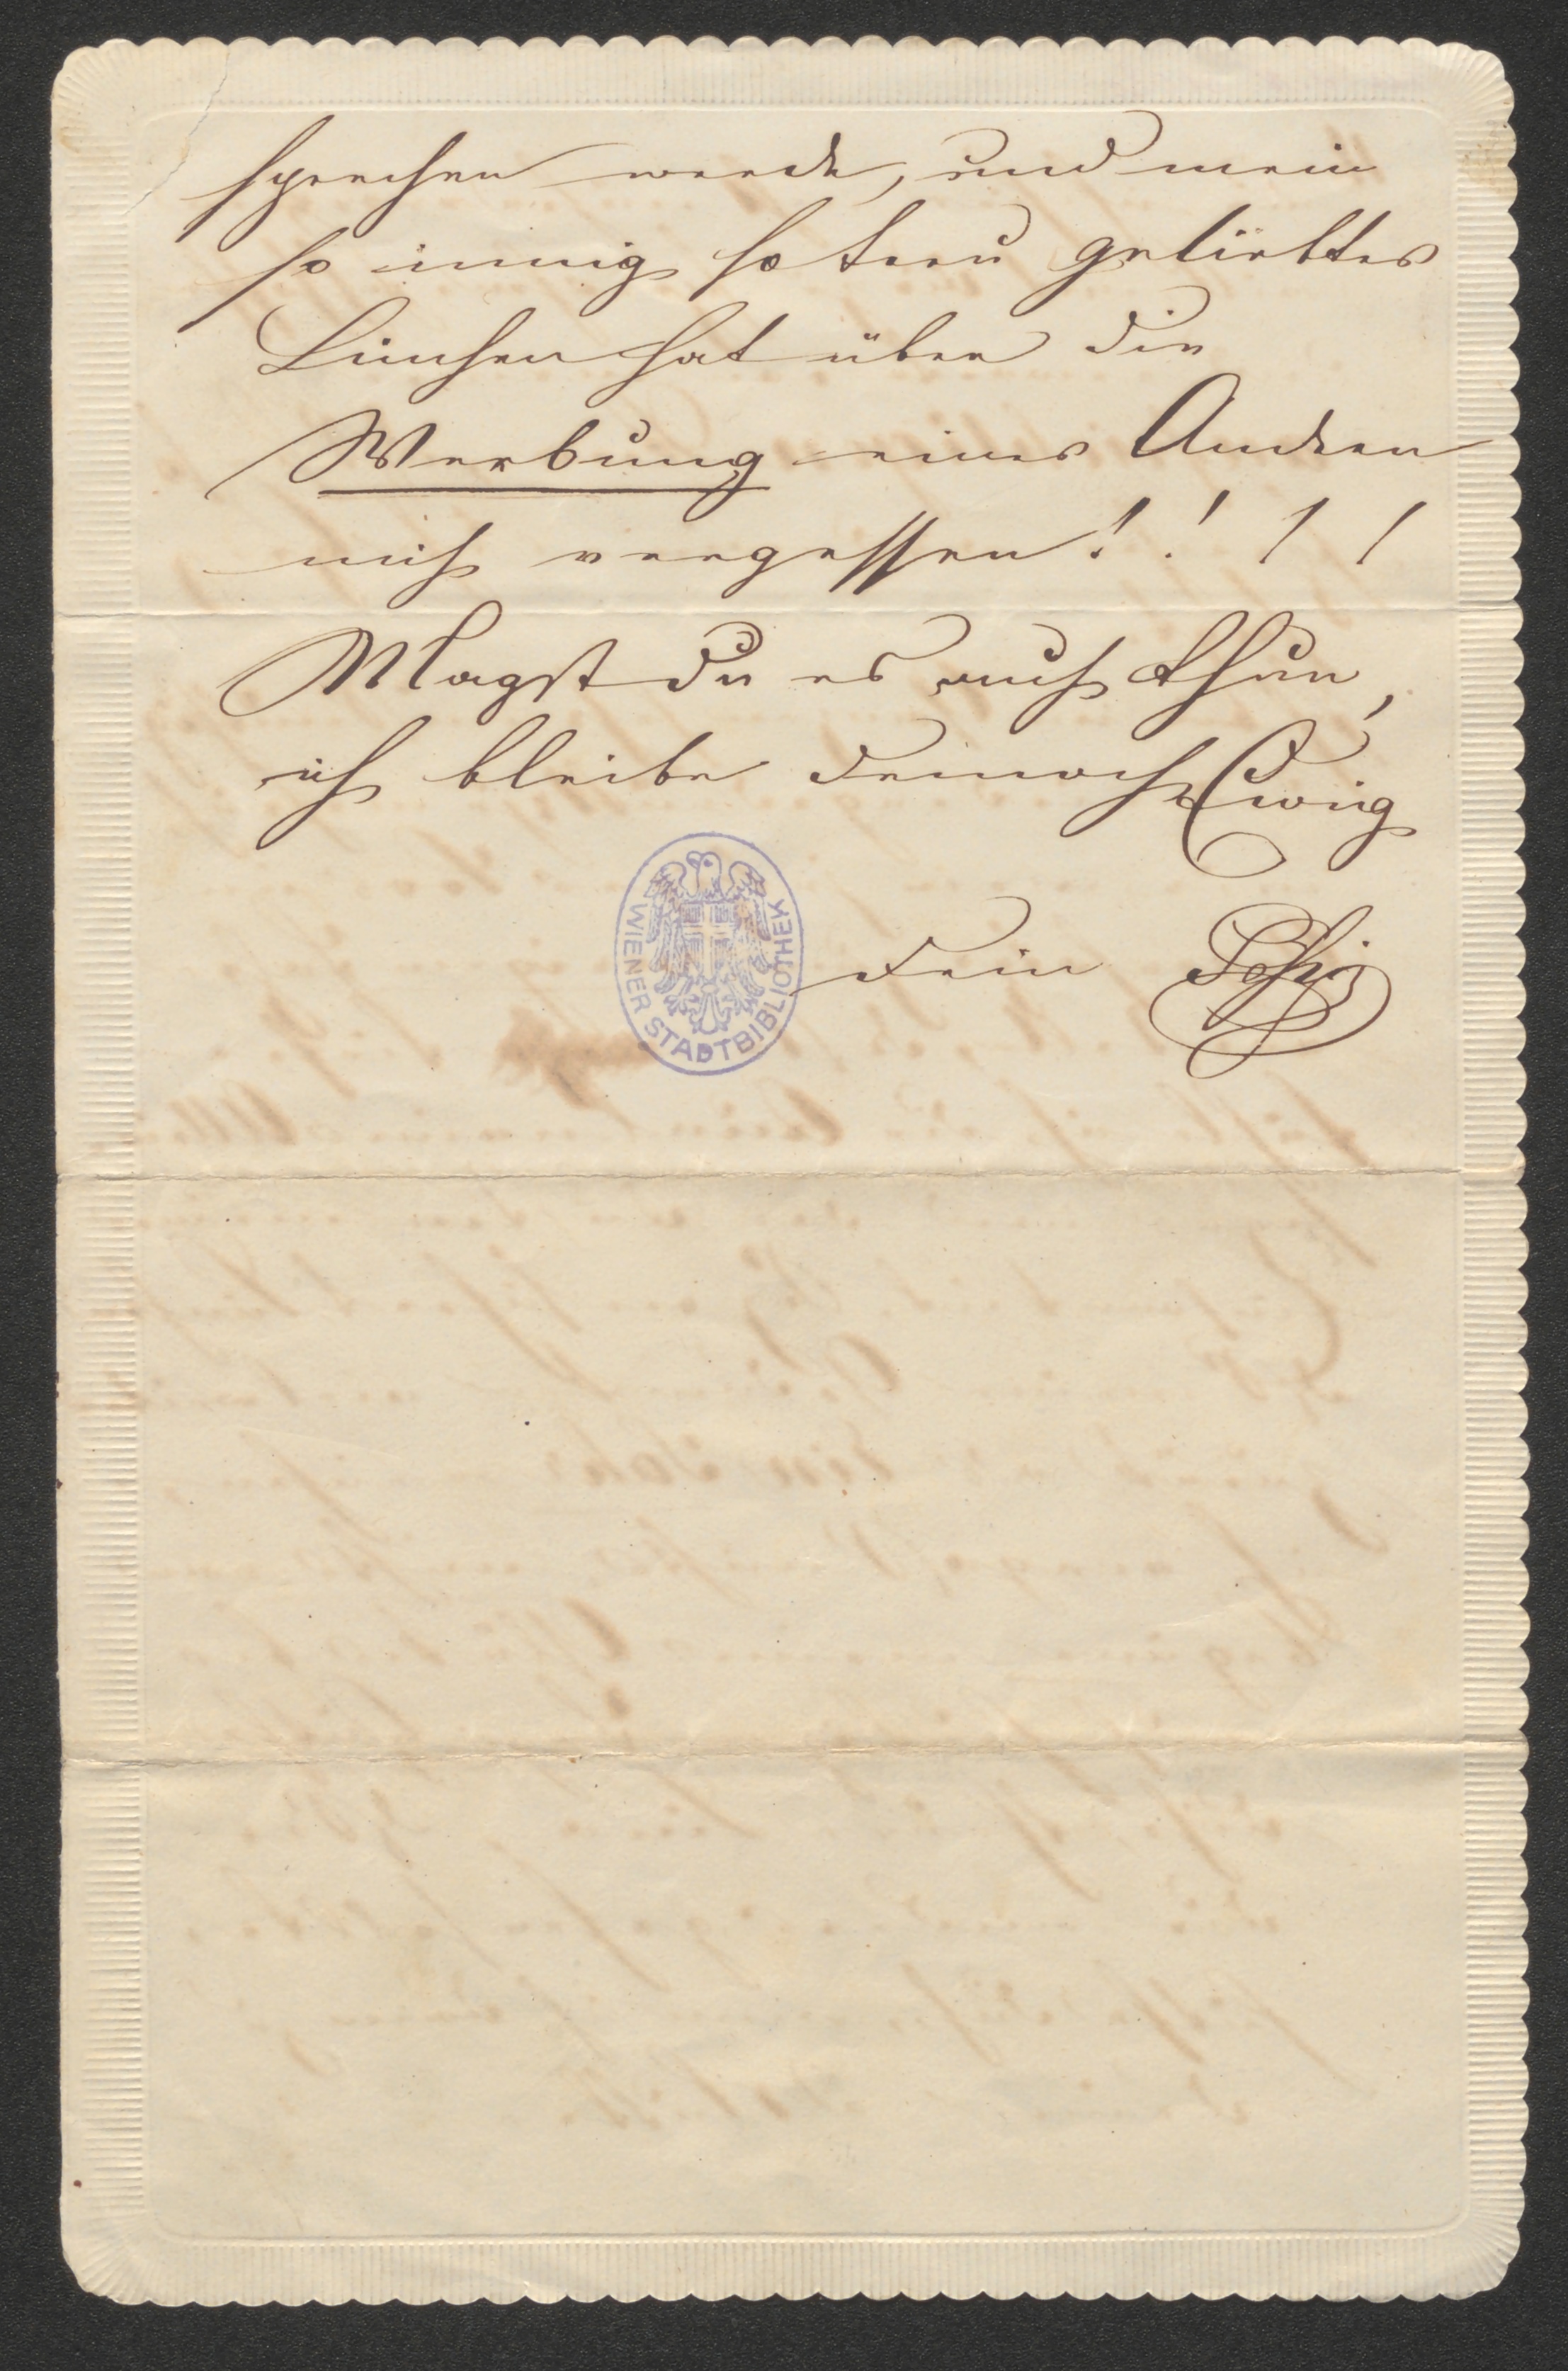 sprechen werde, und mein
so innig so treu geliebtes
Linchen hat über die
Werbung eines Andern
mich vergessen!!!!
Magst du es auch thun,
ich bleibe dennoch Ewig
dein
WIENER STADTBIBLIOTHEK